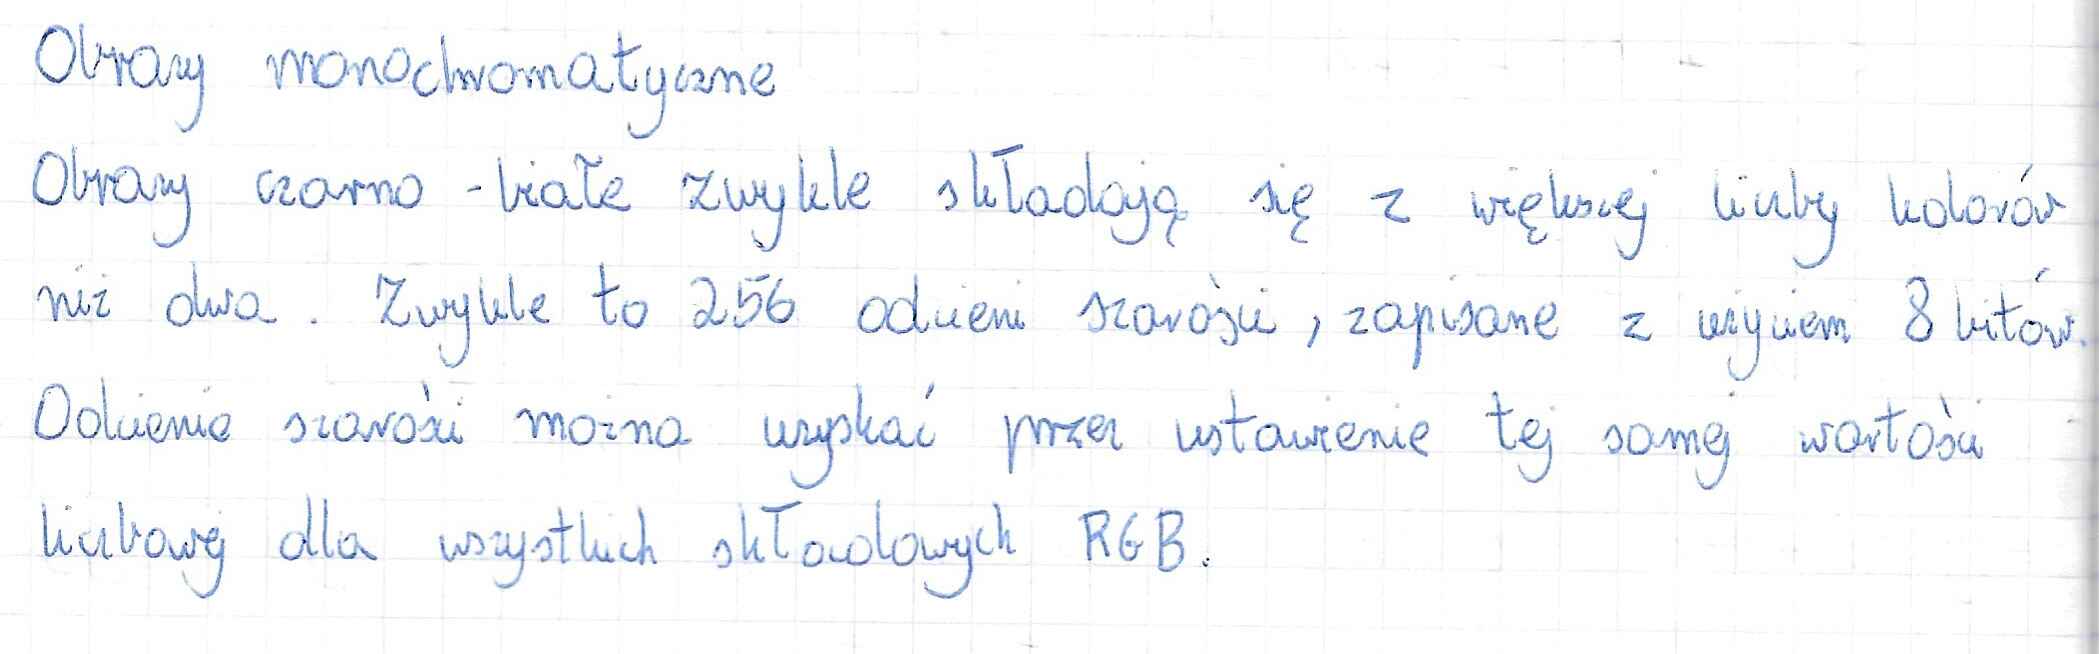 Obrazy monochromatyczne
Obrazy czarno-białe zwykle składają się z większej liczby kolorów
niż dwa. Zwykle to 256 odcieni szarości, zapisane z użyciem 8 bitów.
Odcienie szarości można uzyskać przez ustawienie tej samej wartości
liczbowej dla wszystkich składowych RGB.